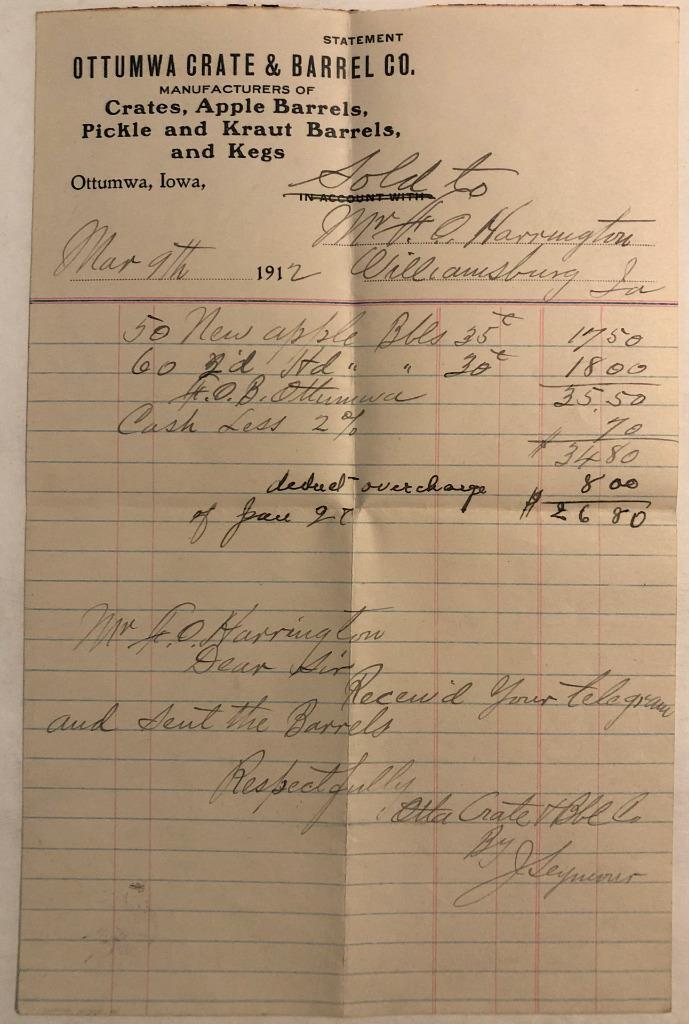 STATEMENT
OTTUMWA CRATE & BARREL CO.
MANUFACTURERS OF
Crates, Apple Barrels,
Pickle and Kraut Barrels,
and Kegs
Ottumwa, Iowa,
Sold to
IN ACCOUNT WITH
Mr. H. O. Harrington
Mar 9th 1912 Williamsburg Ia
50 New apple Bbls 35c 17 50
60 2'd Hd " " 30c 18 00
F.O.B. Ottumwa 35.50
Cash Less 2% 70
$ 34 80
deduct overcharge 8 00
of Jan 27 $ 26 80
Mr H. O. Harrington
Dear Sir
Receiv'd Your telegram
and sent the Barrels
Respectfully
Otta Crate & Bbl Co
By
J Seymour